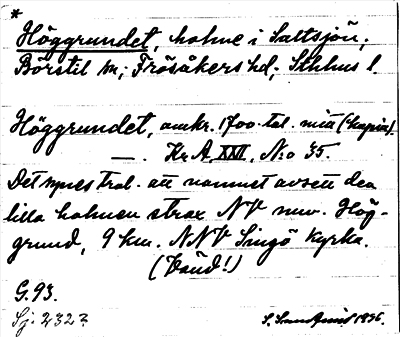 *
Höggrundet, holme i Saltsjön;
Börstil sn; Frösåkers hd; Sthlms l.
Höggrundet, omkr. 1700-tal. mitt (kopia)
— . Kr. A. XXII, N:o 35.
Det synes tral. att namnet avsett den
lilla holmen strax NV om. Hög-
grund, 9 km. NNV Singö kyrka.
(Vänd!)
G. 93.
Sj. 232?
1896.